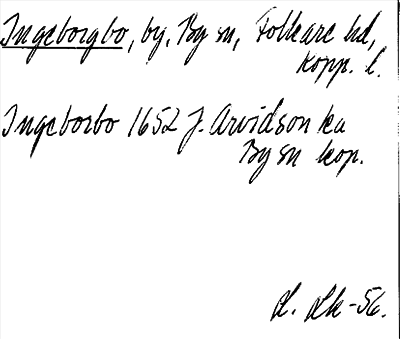 Ingeborgbo, by, By sn, Folkare hd,
Kopp. l.
Ingeborbo 1652 J. Arvidson ka
By sn kop.
L. Lk -56.